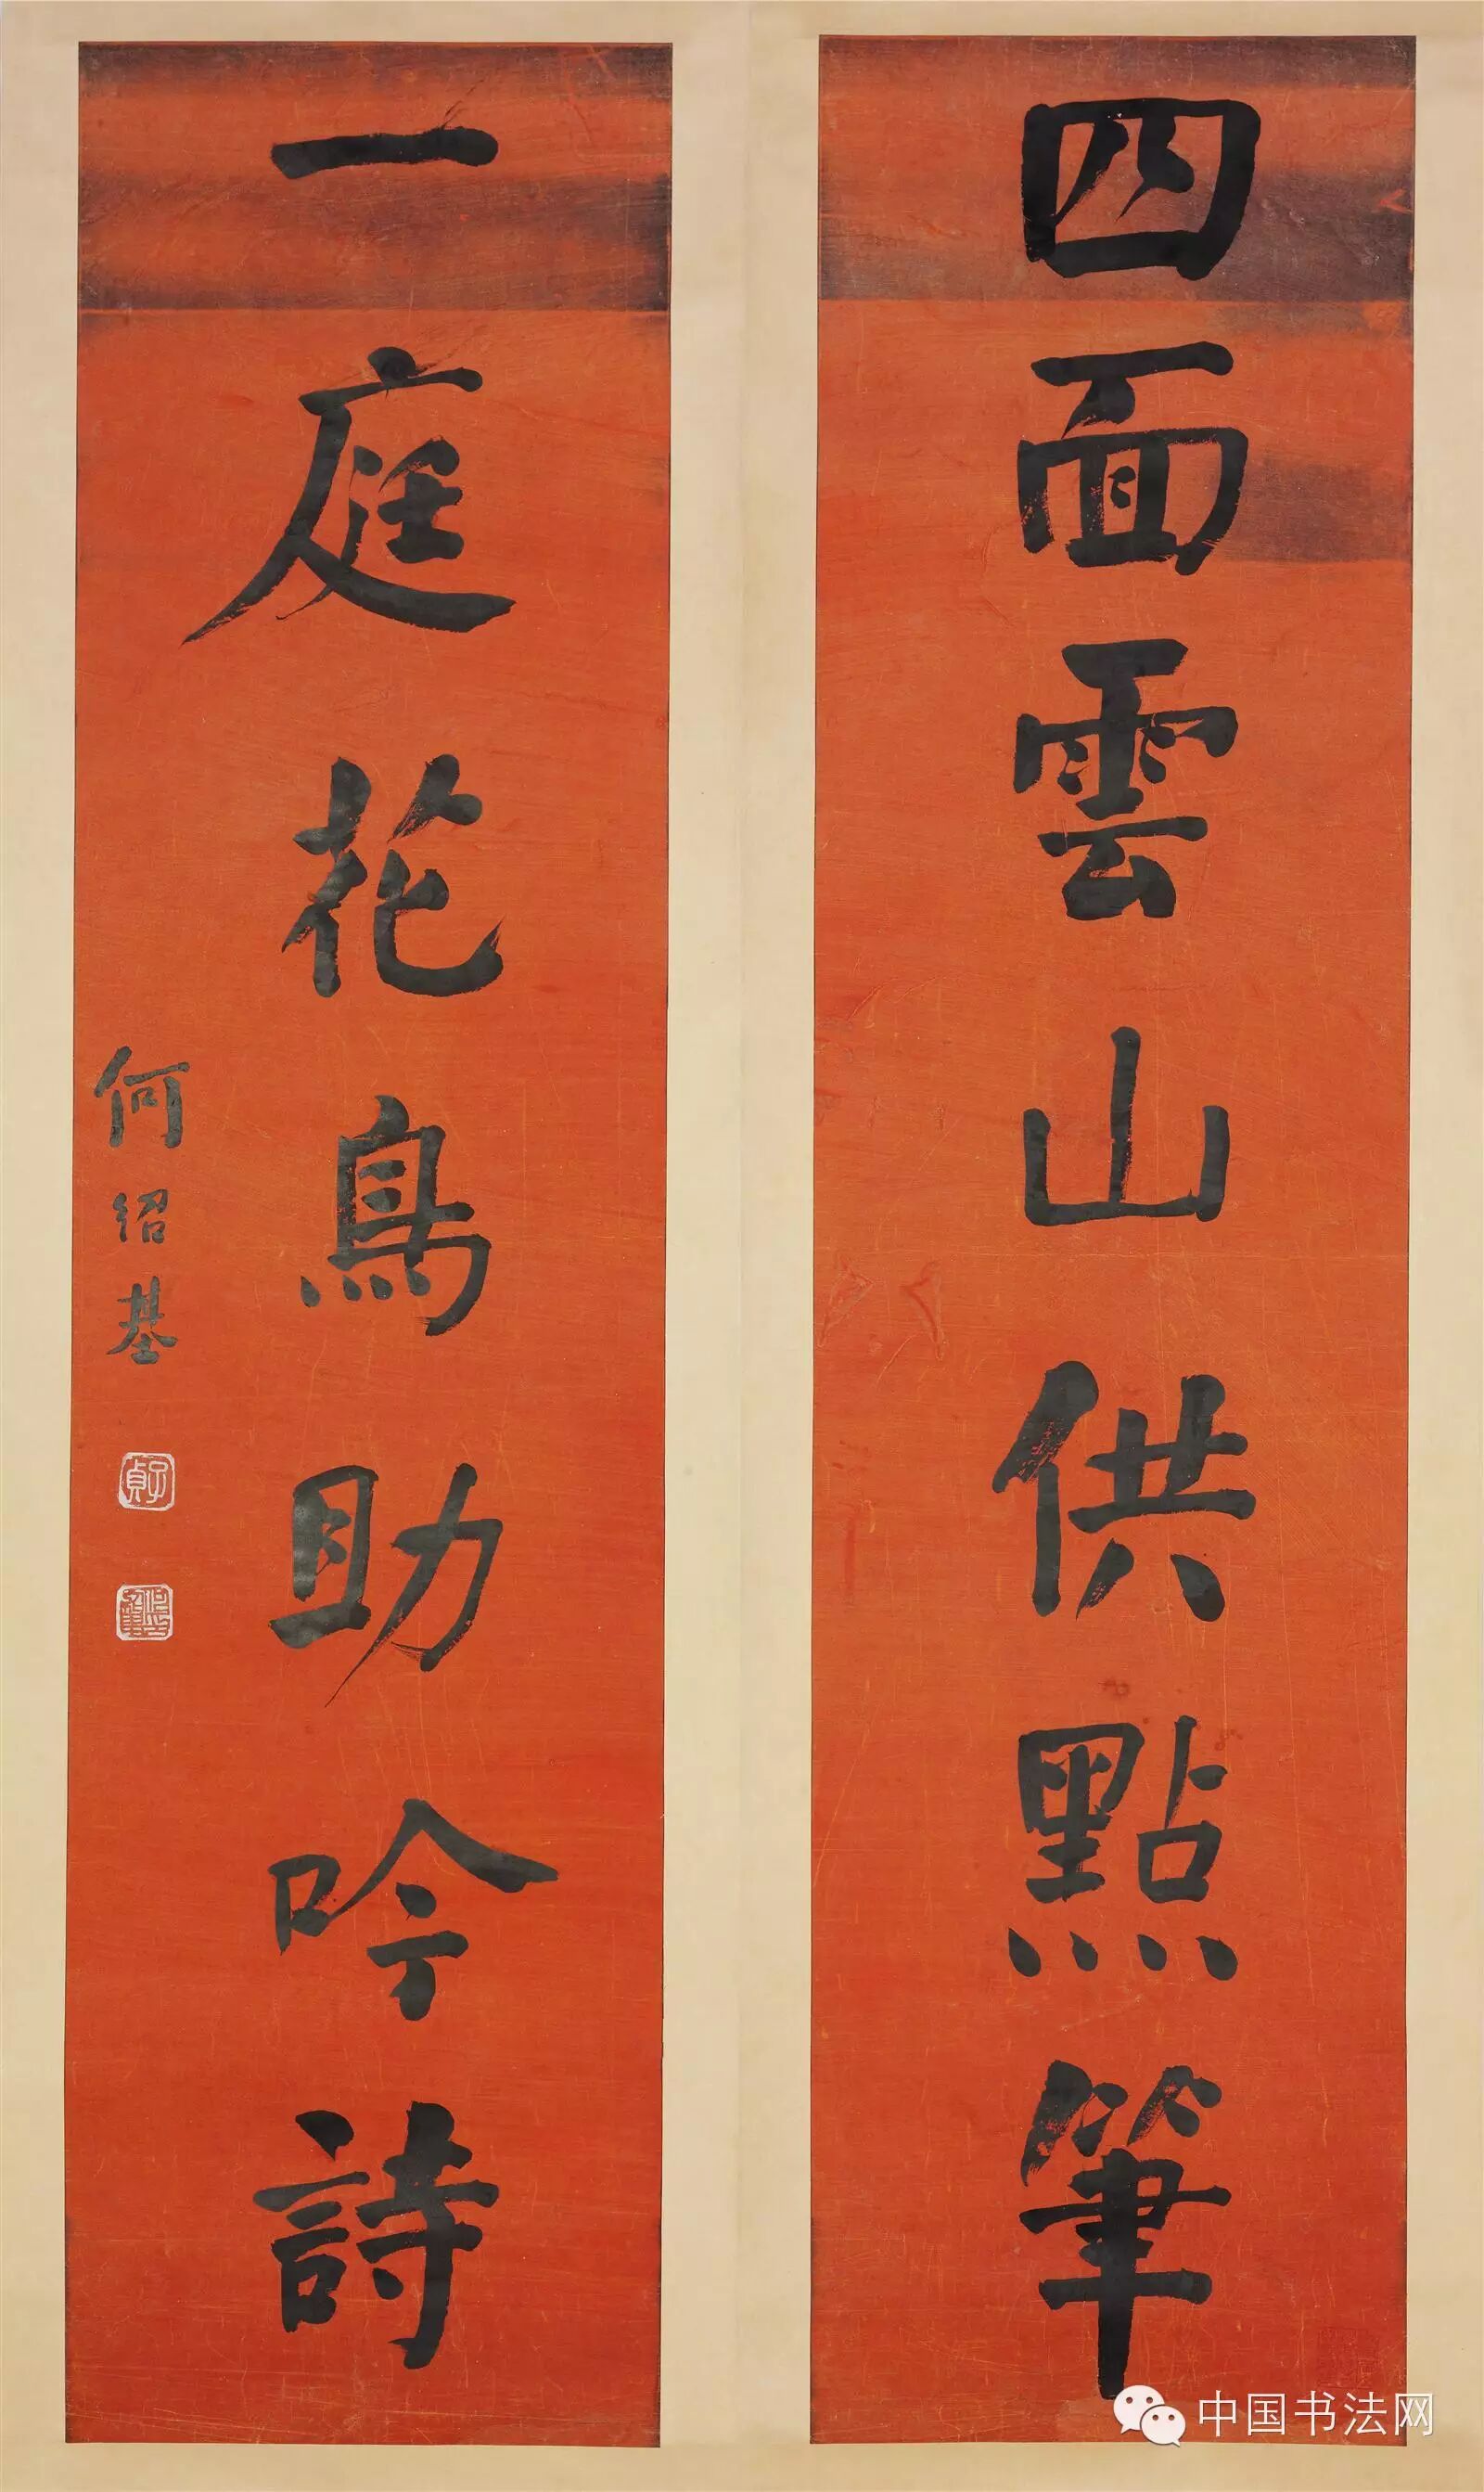 四面雲山供點筆
一庭花鳥助吟詩
何紹基
子貞
中国书法网